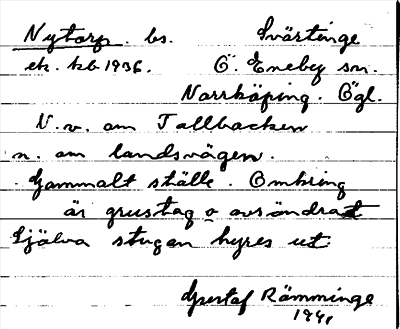 Nytorp. bs. Svärtinge
ek. kb 1936. Ö. Eneby sn.
Norrköping. Ögl.
N.v. om Tallbacken
n. om landsvägen.
Gammalt ställe. Omkring
är grustag o avsöndrat
Själva stugan hyres ut
Gustaf Rämminge
1941